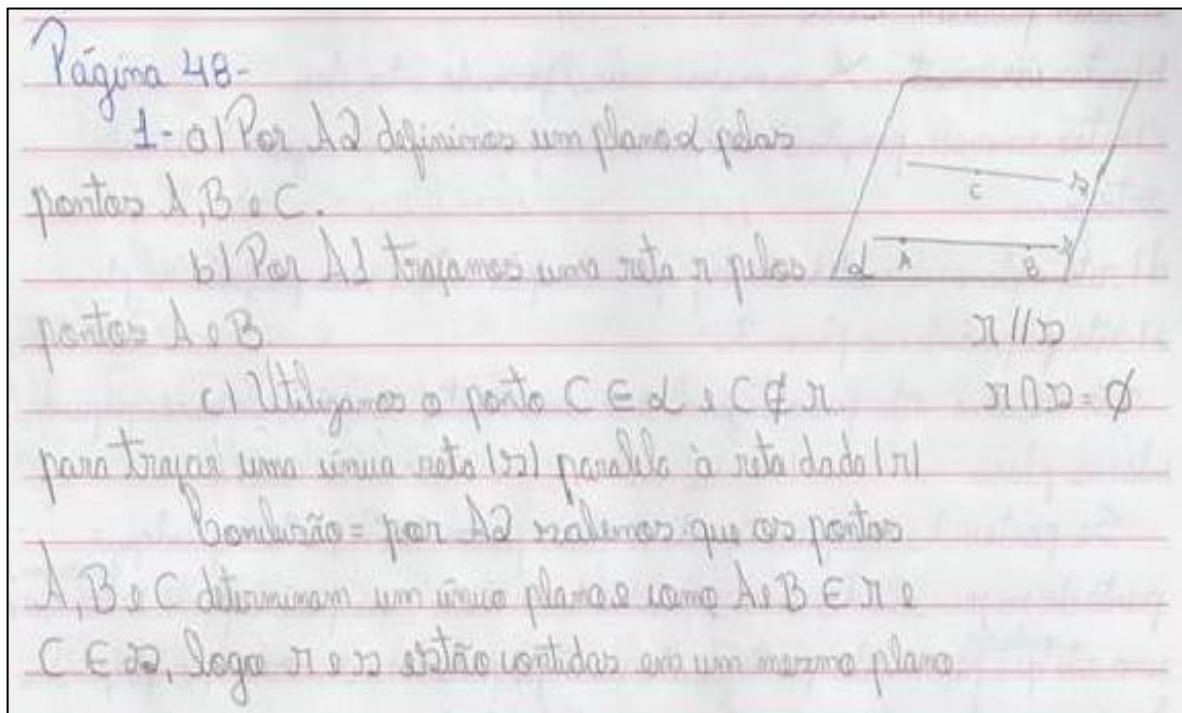 Página 48-
1- a) Por A2 definimos um plano α pelos
pontos A, B e C.
b) Por A1 traçamos uma reta r pelos
pontos A e B
c) Utilizamos o ponto C ∈ α e C ∉ r
para traçar uma única reta (s) paralela à reta dada (r)
Conclusão = por A2 sabemos que os pontos
A, B e C determinam um único plano e como A e B ∈ r e
C ∈ s, logo r e s estão contidas em um mesmo plano
C s
A B r
α
r // s
r ∩ s = ∅